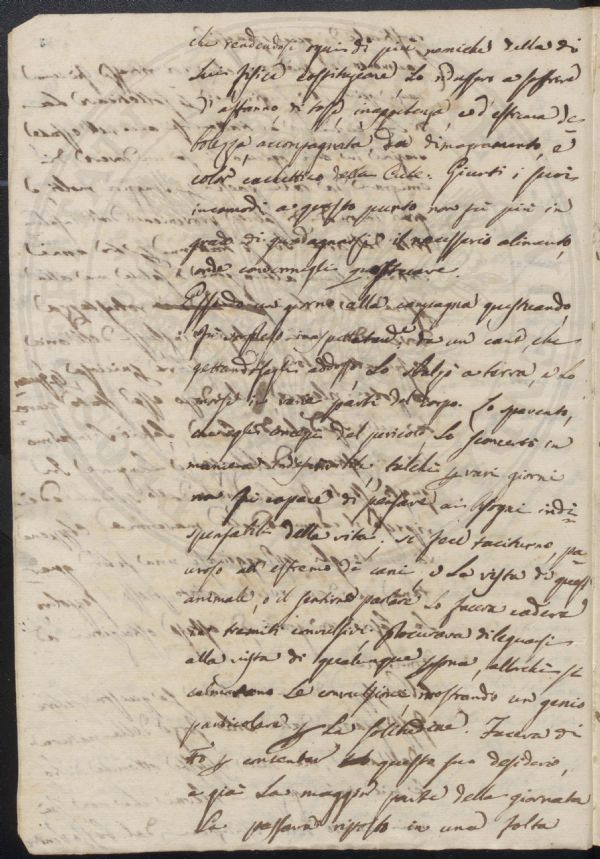 che rendendosi ogni dì più nemiche della di
lui fisica costituzione lo ridussero a soffrire
d'affanno di tosse, inappetenza, ed estrema de=
bolezza accompagnata da dimagramento, e
color cachettico della Cute. Giunti i suoi
incomodi a questo punto non fu più in
grado di guadagnarsi il necessario alimento,
onde convennegli questuare.
Essendo un giorno alla campagna questuando,
fu sorpreso inaspettatam.e da un cane, che
gettandosegli addosso lo sbalzò a terra, e lo
morse in varie parti del corpo. Lo spavento,
del pericolo lo sconcertò in
maniera talchè p vari giorni
non fu capace di pensare ai bisogni indi=
spensabili della vita; si fece taciturno, pa=
uroso all'estremo de cani, e la vista di quest'
animale, o il sentirne parlare lo faceva cadere
in tremiti convulsivi. Procurava dileguarsi
alla vista di qualunque psona, allorchè si
calmavano le convulsioni mostrando un genio
particolare p la solitudine. Faceva di
tto p contentar questo suo desiderio,
e già la maggior parte della giornata
la passava riposto in una folta